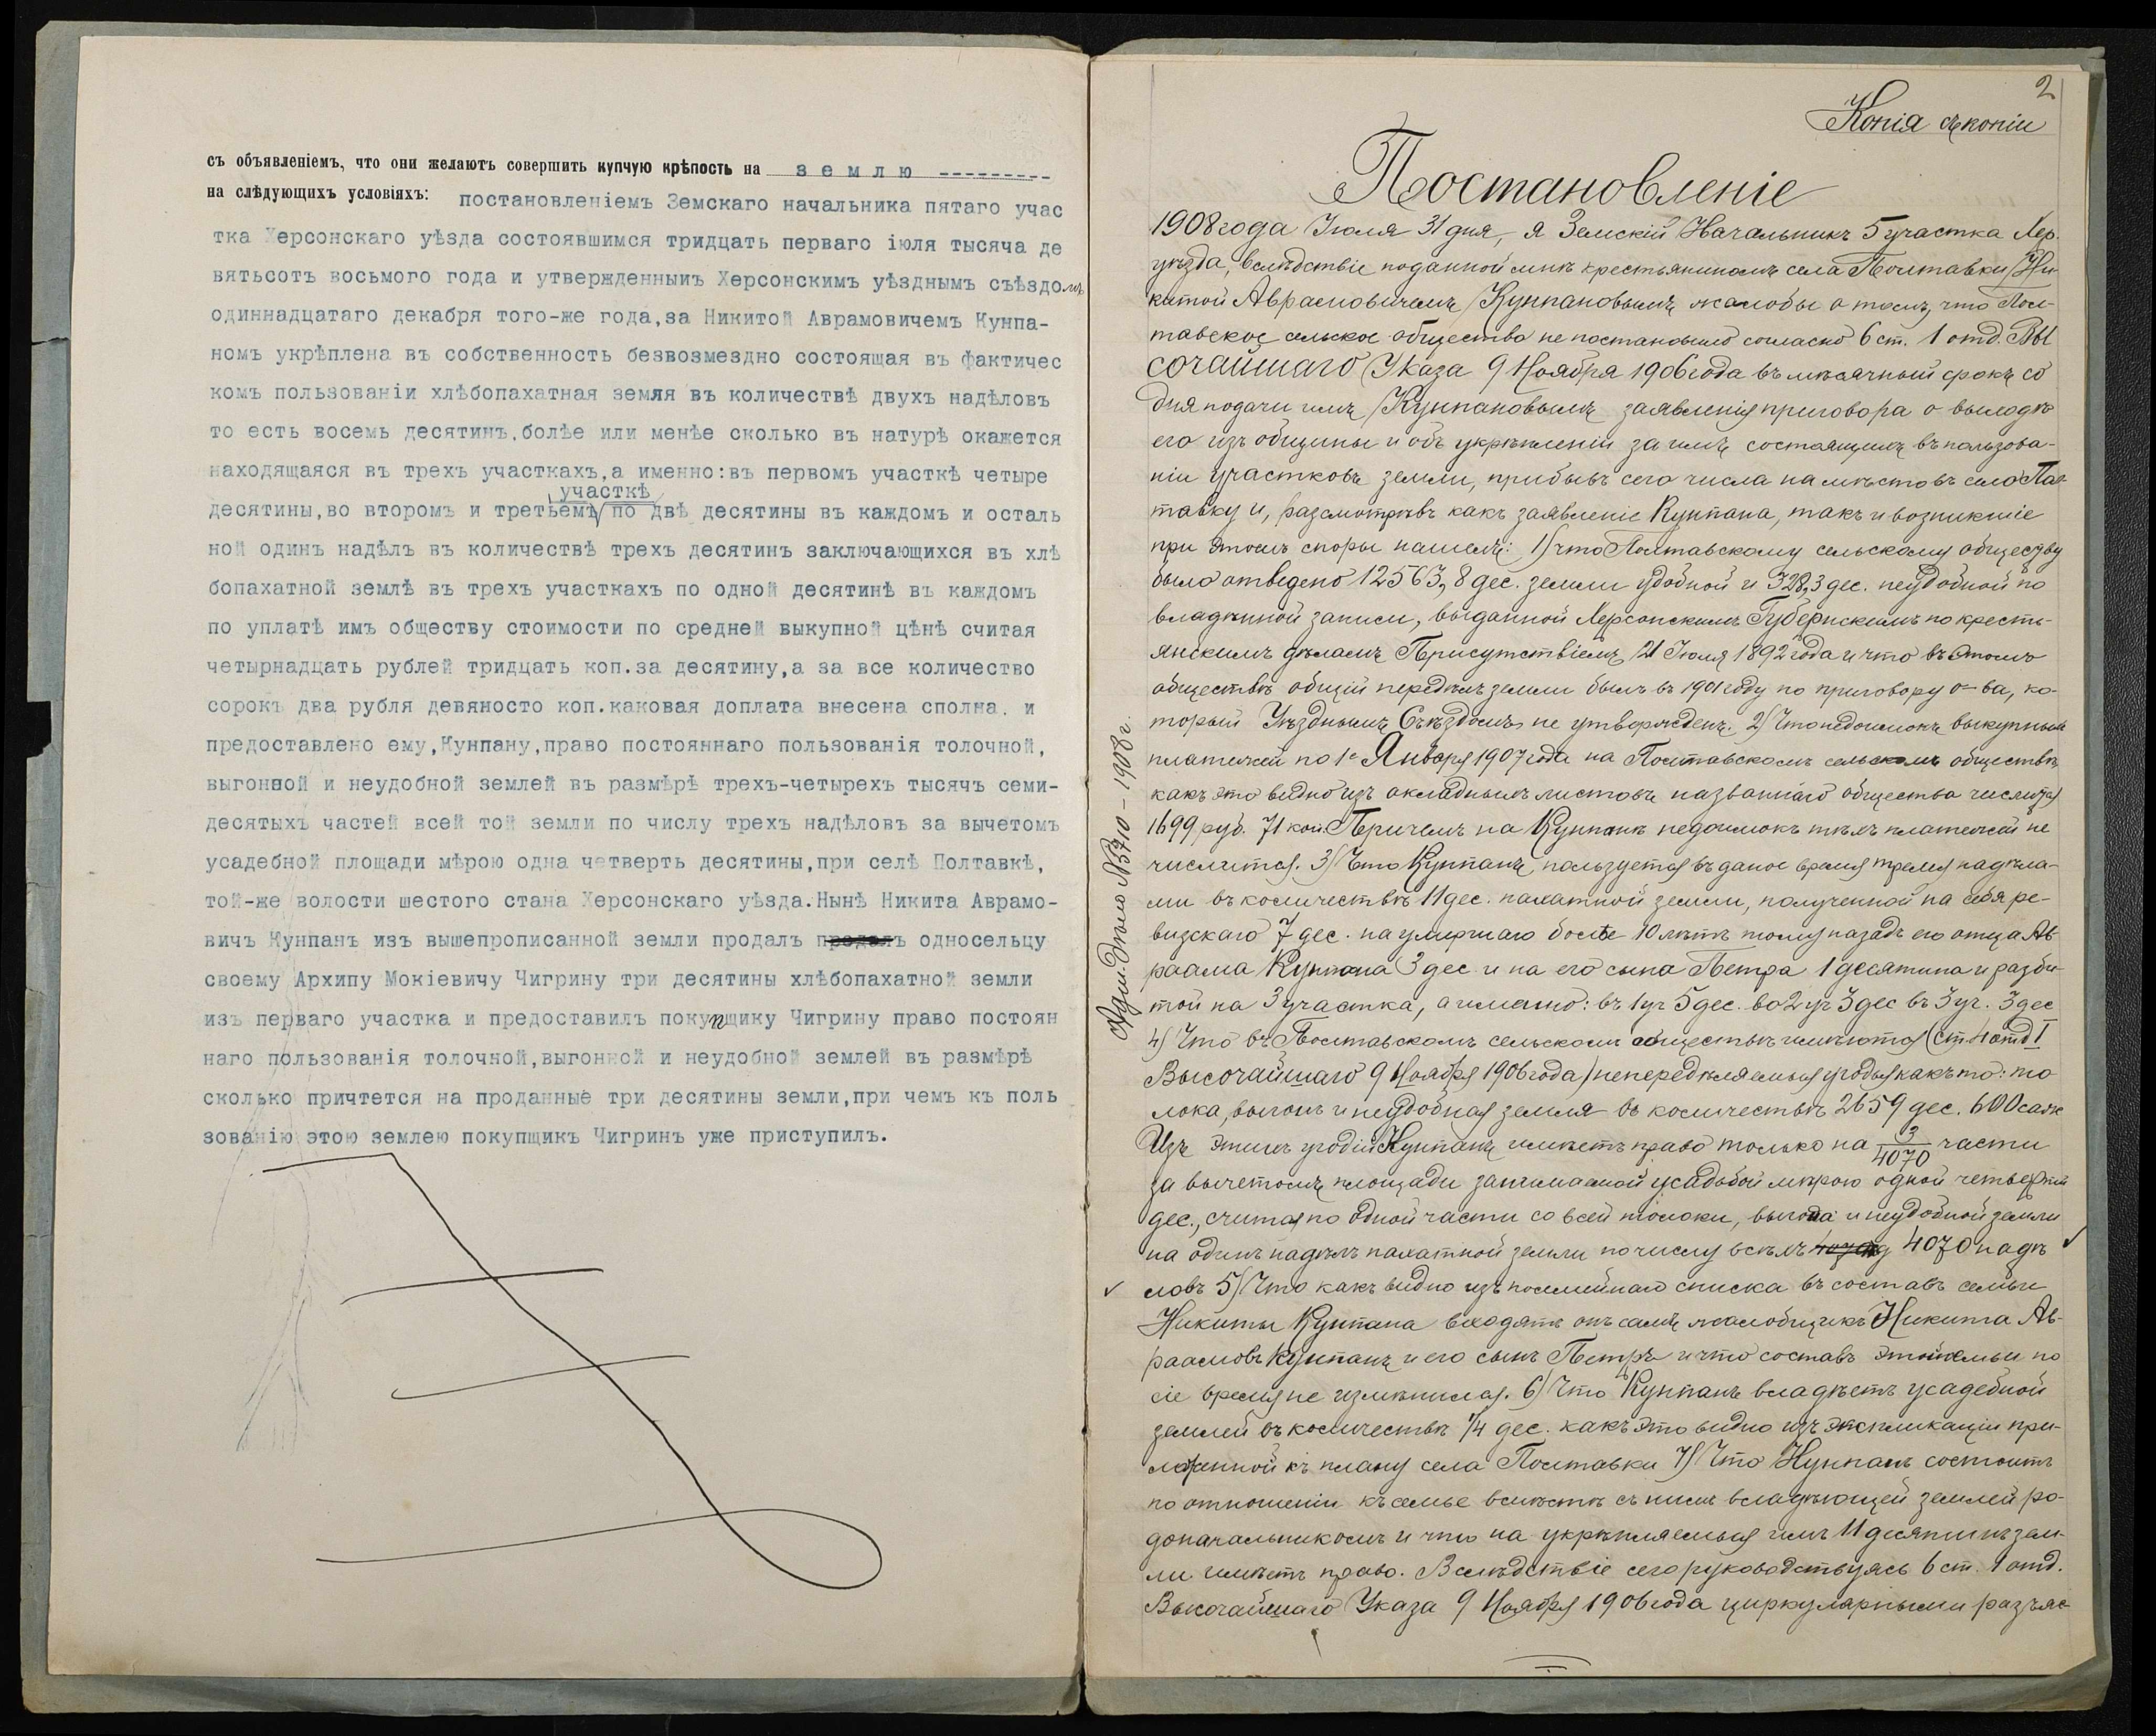 съ объявленіемъ, что они желаютъ совершить купчую крѣпость на землю ---------
на слѣдующихъ условіяхъ: постановленіемъ Земскаго начальника пятаго учас
тка Херсонскаго уѣзда состоявшимся тридцать перваго іюля тысяча де
вятьсотъ восьмого года и утвержденныиъ Херсонскимъ уѣзднымъ съѣздомъ
одиннадцатаго декабря того-же года,за Никитой Аврамовичемъ Кунпа-
номъ укрѣплена въ собственность безвозмездно состоящая въ фактичес
комъ пользованіи хлѣбопахатная земля въ количествѣ двухъ надѣловъ
то есть восемь десятинъ,болѣе или менѣе сколько въ натурѣ окажется
находящаяся въ трехъ участкахъ,а именно:въ первомъ участкѣ четыре
участкѣ
десятины,во второмъ и третьемъ по двѣ десятины въ каждомъ и осталь
ной одинъ надѣлъ въ количествѣ трехъ десятинъ заключающихся въ хлѣ
бопахатной землѣ въ трехъ участкахъ по одной десятинѣ въ каждомъ
по уплатѣ имъ обществу стоимости по средней выкупной цѣнѣ считая
четырнадцать рублей тридцать коп.за десятину,а за все количество
сорокъ два рубля девяносто коп.каковая доплата внесена сполна. и
предоставлено ему,Кунпану,право постояннаго пользованія толочной,
выгонной и неудобной землей въ размѣрѣ трехъ-четырехъ тысячъ семи-
десятыхъ частей всей той земли по числу трехъ надѣловъ за вычетомъ
усадебной площади мѣрою одна четверть десятины,при селѣ Полтавкѣ,
той-же волости шестого стана Херсонскаго уѣзда.Нынѣ Никита Аврамо-
вичъ Кунпанъ изъ вышепрописанной земли продалъ продалъ односельцу
своему Архипу Мокіевичу Чигрину три десятины хлѣбопахатной земли
изъ перваго участка и предоставилъ покупщику Чигрину право постоян
наго пользованія толочной,выгонной и неудобной землей въ размѣрѣ
сколько причтется на проданные три десятины земли,при чемъ къ поль
зованію этою землею покупщикъ Чигринъ уже приступилъ.
2
Копія съ копіи
Постановленіе
1908 года Іюля 31 дня, я Земскій Начальникъ 5 участка Хер.
уѣзда, вслѣдствіе поданной мнѣ крестьяниномъ села Полтавки Ни-
китой Аврамовичемъ Кунпановымъ жалобы о томъ, что Пол-
тавское сельское общество не постановило согласно 6 ст. 1 отд. Вы
сочайшаго Указа 9 Ноября 1906 года въ мѣсячный срокъ со
дня подачи имъ Кунпановымъ заявленія приговора о выходѣ
его изъ общины и объ укрѣпленіи за нимъ состоящихъ въ пользова-
ніи участковъ земли, прибывъ сего числа на мѣсто въ село Пол-
тавку и, разсмотрѣвъ какъ заявленіе Кунпана, такъ и возникшіе
при этомъ споры нашелъ: 1) что Полтавскому сельскому обществу
было отведено 12563,8 дес. земли удобной и 328,3 дес. неудобной по
владѣнной записи, выданной Херсонскимъ Губернскимъ по кресть-
янскимъ дѣламъ Присутствіемъ 21 Іюля 1892 года и что въ этомъ
обществѣ общій передѣлъ земли былъ въ 1901 году по приговору о-ва, ко-
торый Уѣзднымъ Съѣздомъ не утвержденъ. 2) Что недоимокъ выкупныхъ
платежей по 1е Января 1907 года на Полтавскомъ сельскомъ обществѣ,
какъ это видно изъ окладныхъ листовъ названнаго общества числится
1699 руб. 71 коп. Причемъ на Кунпанѣ недоимокъ тѣхъ платежей не
числится. 3) Что Кунпанъ пользуется въ даное время тремя надѣла-
ми въ количествѣ 11 дес. пахатной земли, полученной на себя ре-
визскаго 7 дес. на умершаго болѣе 10 лѣтъ тому назадъ его отца Ав-
раама Кунпана 3 дес. и на его сына Петра 1 десятина и разби-
той на 3 участка, а именно: въ 1 уч 5 дес. во 2 уч 3 дес въ 3 уч. 3 дес
4) Что въ Полтавскомъ сельскомъ обществѣ имѣются (ст. 4 отд I
Высочайшаго 9 Ноября 1906 года) непередѣляемыя угодья какъ то: то
лока, выгонъ и неудобная земля въ количествѣ 2659 дес. 600 саж
Изъ этихъ угодій Кунпанъ имѣетъ право только на 3/4070 части
за вычетомъ площади занимаемой усадьбой мѣрою одной четверти
дес., считая по одной части со всей толоки, выгона и неудобной земли
на одинъ надѣлъ пахатной земли по числу всѣхъ 4070 надѣ
ловъ 5) Что какъ видно изъ посемейнаго списка въ составъ семьи
Никиты Кунпана входятъ онъ самъ жалобщикъ Никита Ав-
раамовъ Кунпанъ и его сынъ Петръ и что составъ этой семьи по
сіе время не измѣнился. 6) Что Кунпанъ владѣетъ усадебной
землей въ количествѣ 1/4 дес. какъ это видно изъ экспликаціи при-
ложенной къ плану села Полтавки 7) Что Кунпанъ состоитъ
по отношеніи къ семье вмѣстѣ съ нимъ владѣющей землей ро-
доначальникомъ и что на укрѣпляемыя имъ 11 десятинъ зем-
ли имѣетъ право. Вслѣдствіе сего руководствуясь 6 ст. 1 отд.
Высочайшаго Указа 9 Ноября 1906 года циркулярными разъяс-
Адм. дѣло № 3710 - 1908 г.